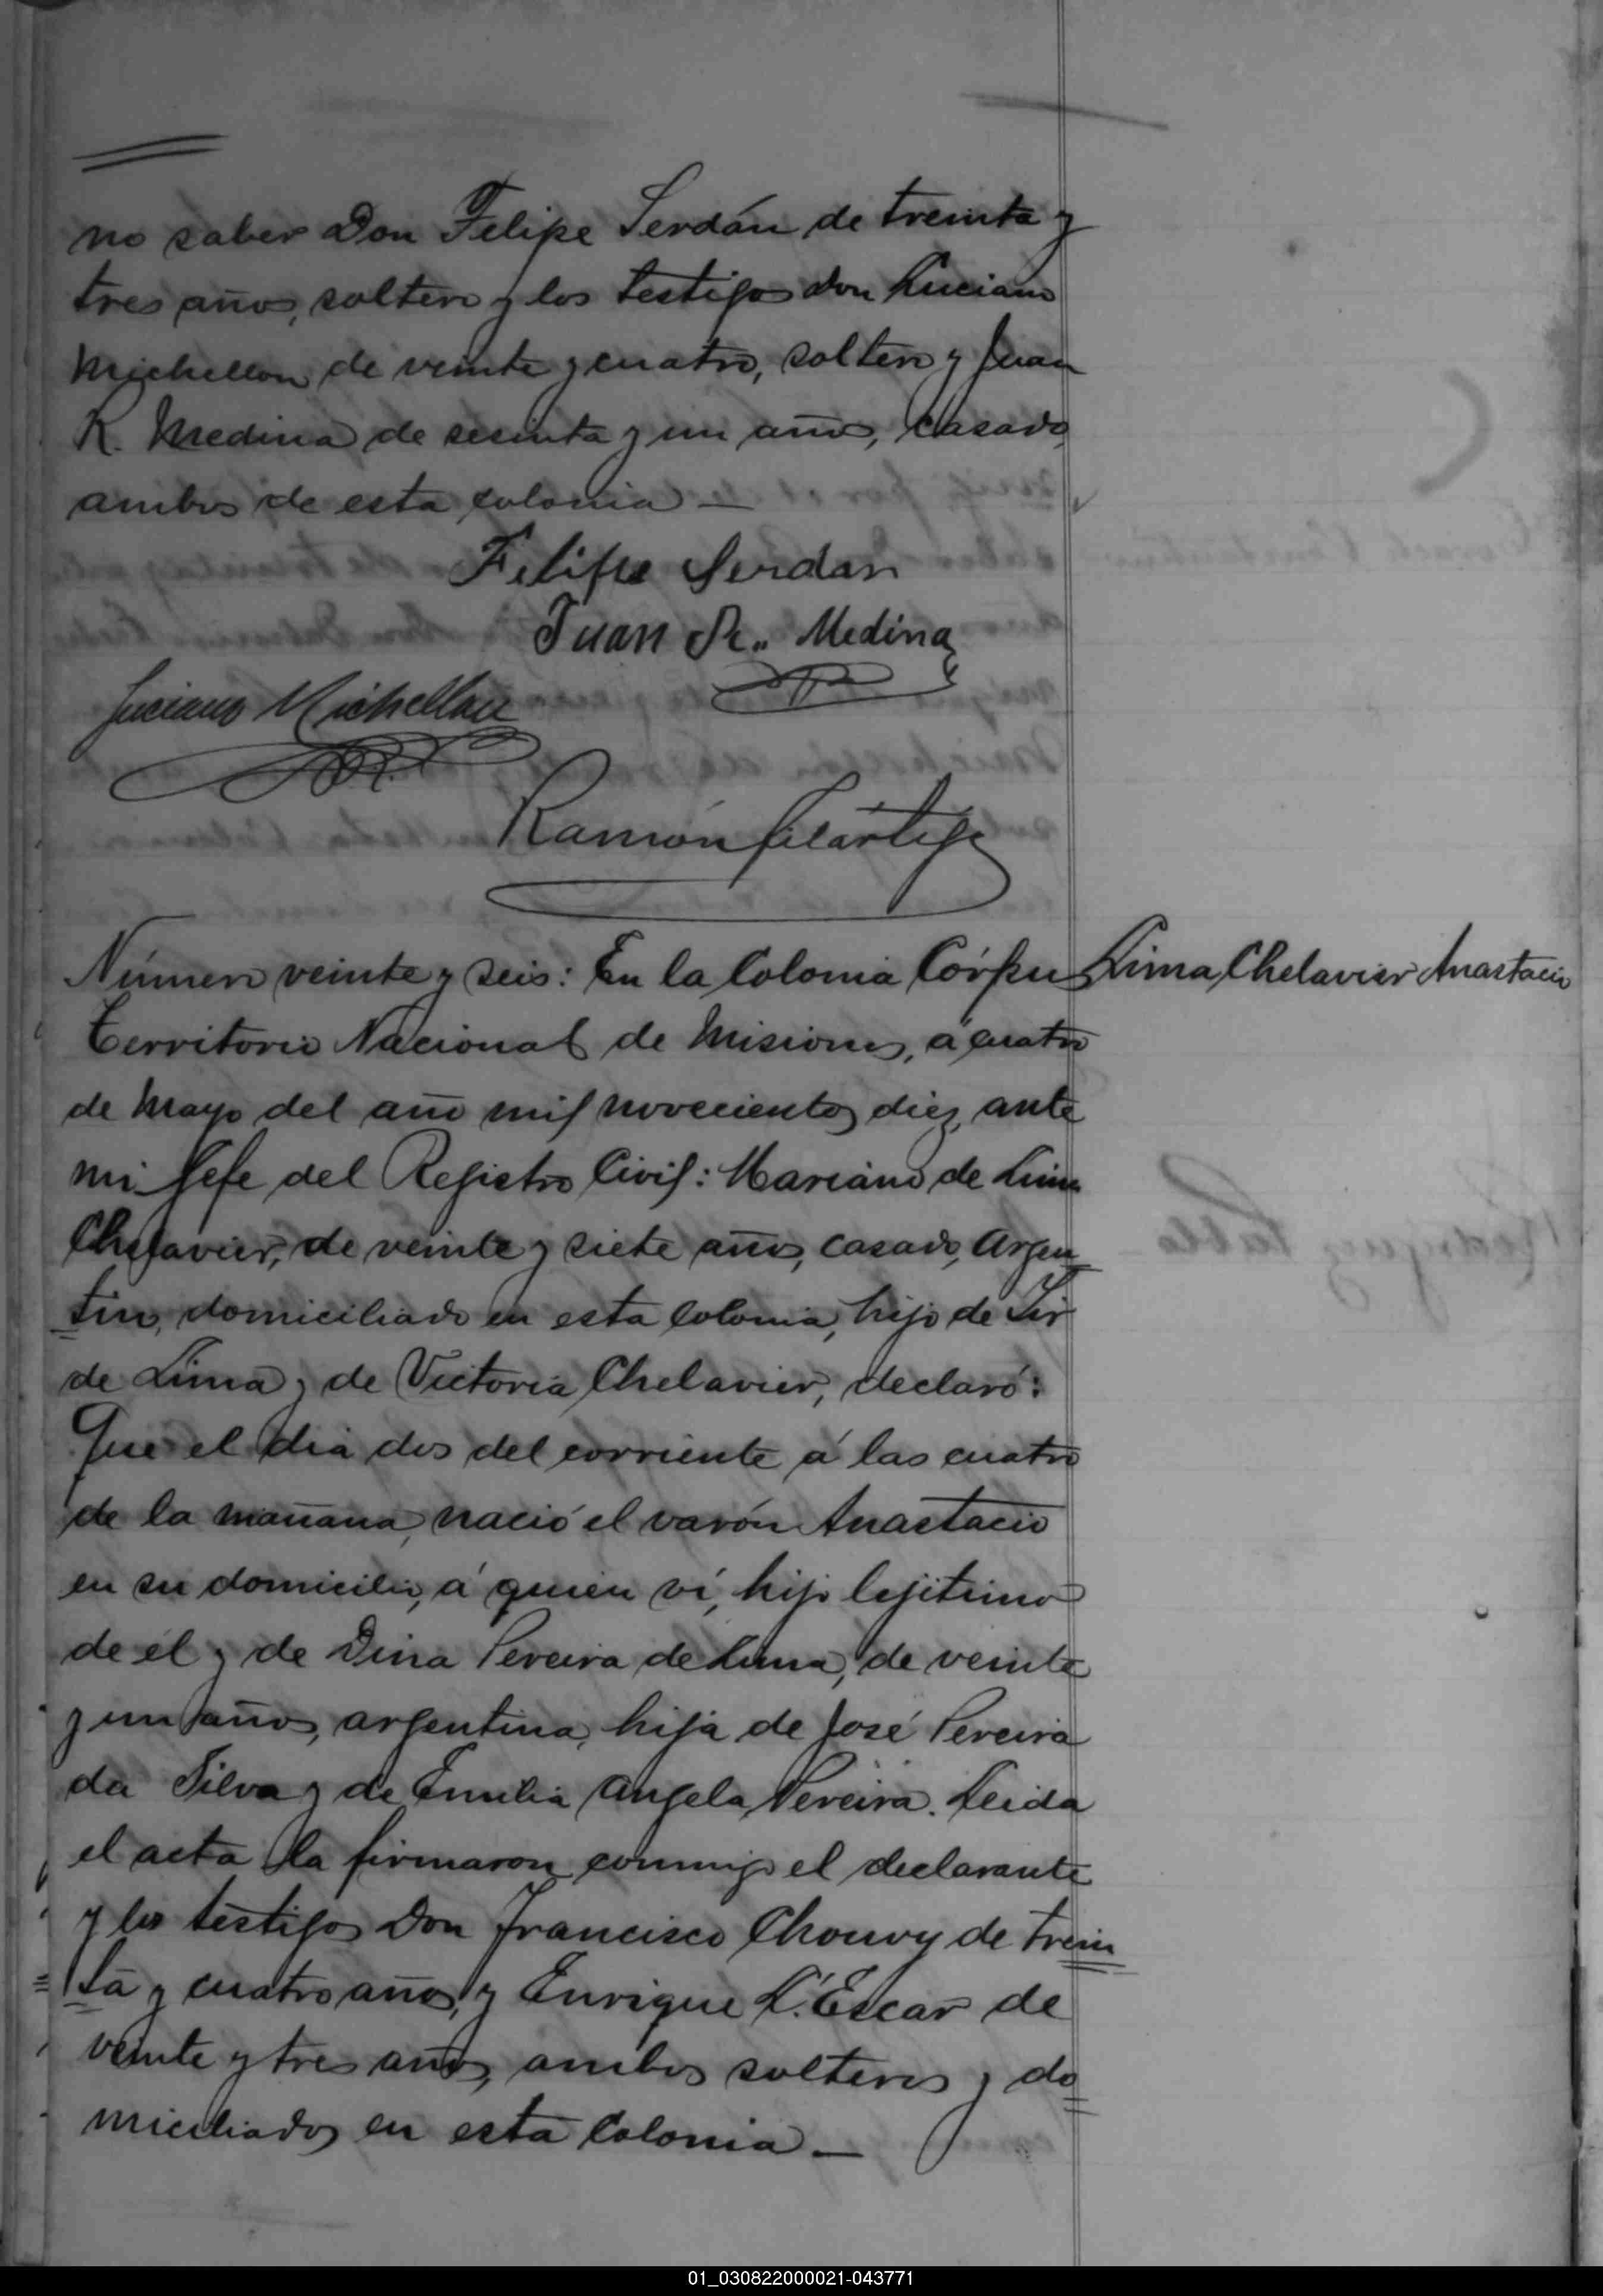 no saber Don Felipe Serdán de treinta y
tres años, soltero y los testigos don Luciano
Michellon de veinte y cuatro, soltero y Juan
R. Medina de sesenta y un años, casado,
ambos de esta colonia —
Felipe Serdan
Juan R. Medina
Luciano Michellon
Ramón Filártiga
Número veinte y seis: En la Colonia Córpus
Lima Chelavier Anastacio
Territorio Nacional de Misiones, á cuatro
de Mayo del año mil novecientos diez, ante
mi Jefe del Registro Civil: Mariano de Lima
Chelavier, de veinte y siete años, casado, Argen
tino, domiciliado en esta Colonia, hijo de
de Lima y de Victoria Chelavier, declaró:
Que el dia dos del corriente á las cuatro
de la mañana, nació el varón Anastacio
en su domicilio, á quien ví, hijo lejitimo
de él y de Dina Pereira de Lima, de veinte
y un años, argentina, hija de José Pereira
da Silva y de Emilia Angela Pereira. Leida
el acta la firmaron conmigo el declarante
y los testigos Don Francisco Chouvy de trein
ta y cuatro años, y Enrique L'Escar de
veinte y tres años, ambos solteros y do
miciliados en esta Colonia —
01_030822000021-043771